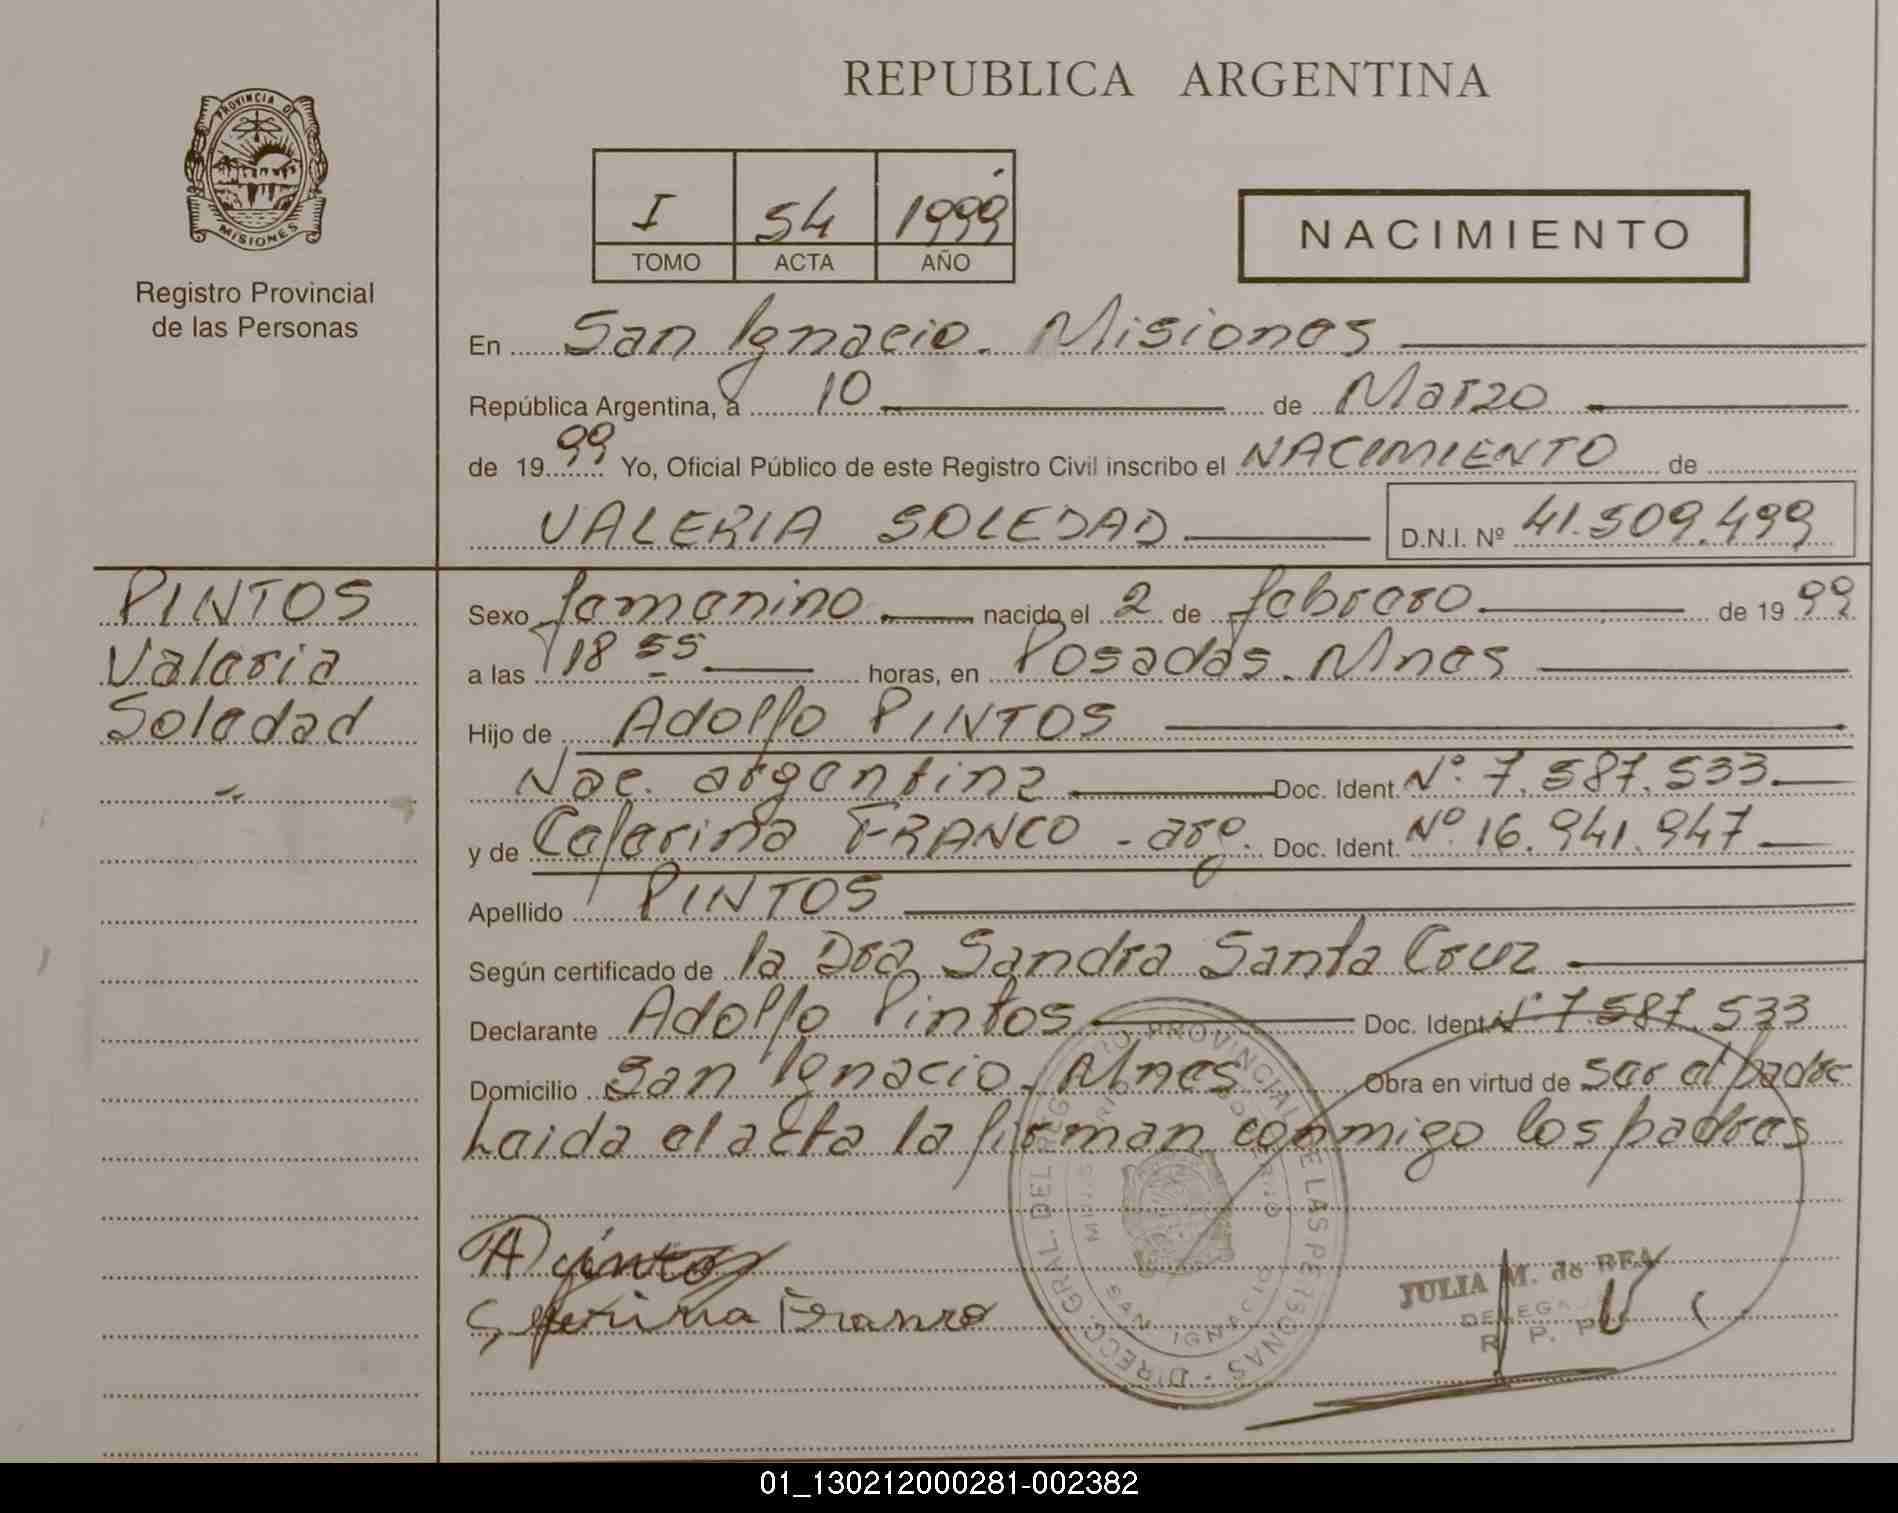 REPUBLICA ARGENTINA
PROVINCIA DE
MISIONES
Registro Provincial
de las Personas
I 54 1999
TOMO ACTA AÑO
NACIMIENTO
En San Ignacio. Misiones
República Argentina, a 10 de Marzo
de 1999 Yo, Oficial Público de este Registro Civil inscribo el NACIMIENTO de
VALERIA SOLEDAD D.N.I. Nº 41.509.499
PINTOS
Valeria
Soledad
Sexo femenino nacido el 2 de febrero de 1999
a las 18 55 horas, en Posadas. Mnes
Hijo de Adolfo PINTOS
Nac. argentina Doc. Ident. Nº 7.587.533
y de Ceferina FRANCO - arg. Doc. Ident. Nº 16.941.947
Apellido PINTOS
Según certificado de la Dra Sandra Santa Cruz
Declarante Adolfo Pintos Doc. Ident. Nº 7.587.533
Domicilio San Ignacio. Mnes Obra en virtud de ser el padre
Leida el acta la firman conmigo los padres
A Pintos
Ceferina Franco
DIRECC. GRAL. DEL REGISTRO PROVINCIAL DE LAS PERSONAS
SAN IGNACIO
JULIA M. de REA
R. P. P.
01_130212000281-002382